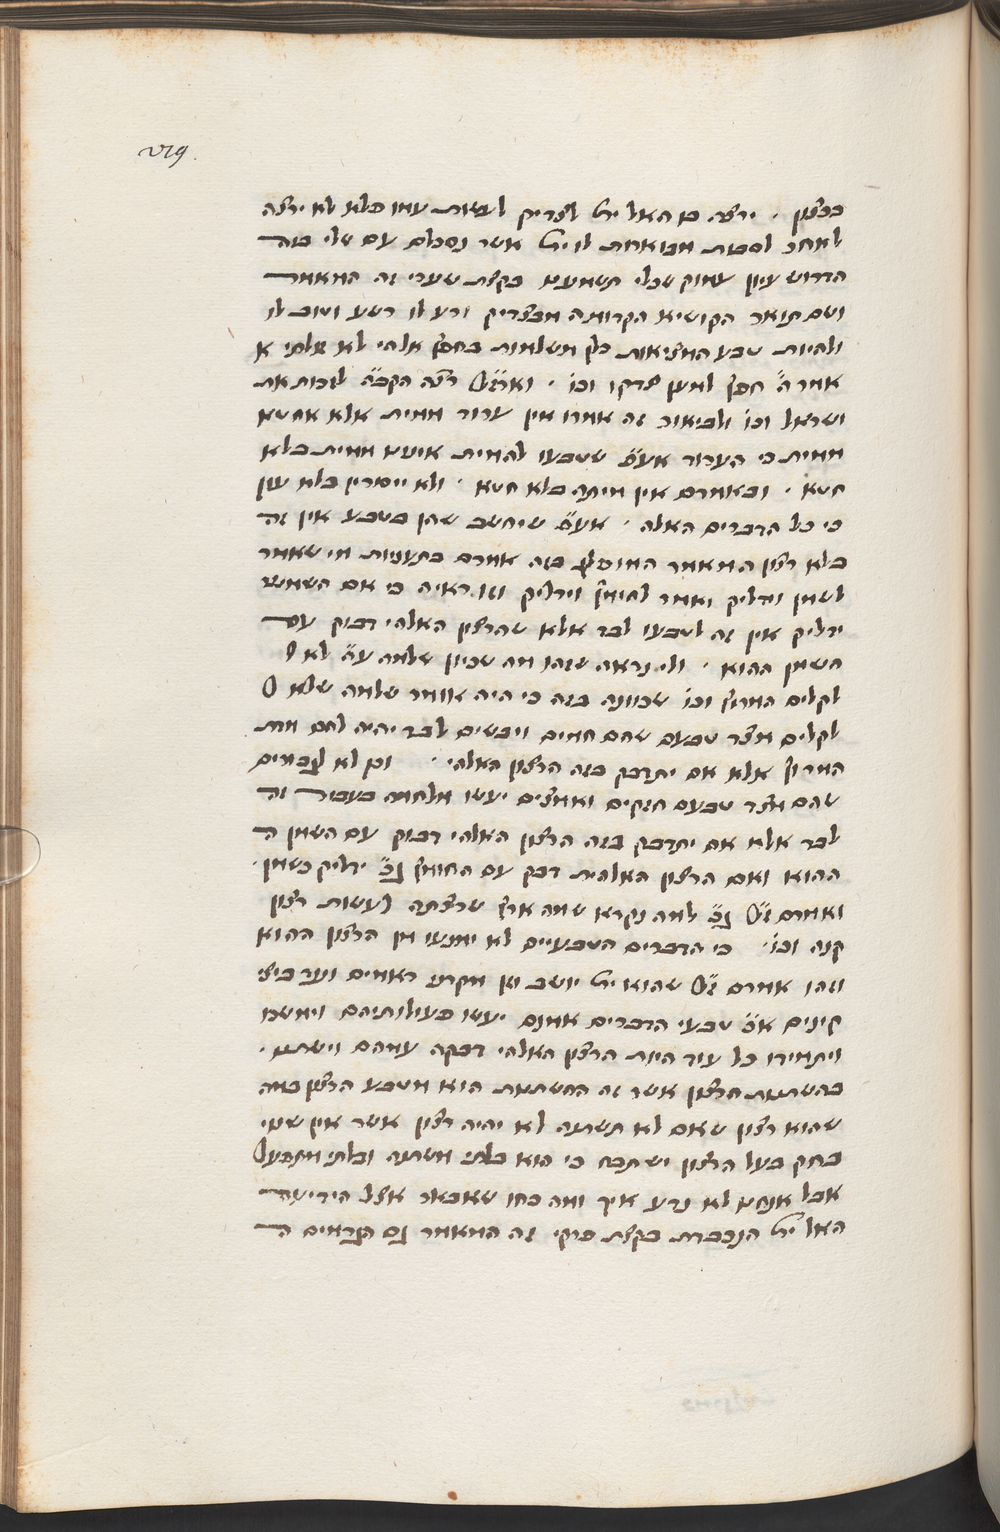 כרצון · ירצה בו האל ית' לצדיק לעשות עמו פלא לא ירצה
לאחר לסבות מבוארות לו ית' אשר נסכלם עם שלי בזה
הדרוש עיון עמוק שכלי תשמענו בקצת שערי זה המאמר
ושם תואר הקושיא הקדומה מבצדיק ורע לו רשע וטוב לו
ולהיות טבע המציאות כלו משלמות בחפץ אלהי לא זולתי א
אמר ה' חפץ למען צדקו וכו' · וארז"ל רצה הקב"ה לזכות את
ישראל וכו' ולביאור זה אמרו אין ערוד ממית אלא החטא
ממית כי הערוד אע"פ שטבעו להמית אינו ממית בלא
חטא · ובאמרם אין מיתה בלא חטא · ולא ייסורין בלא עון
כי כל הדברים האלה · אע"פ שיחשב שהן בטבע אין זה
בלא רצון המאמר המוסכם בזה אמרם בתעניות מי שאמר
לשמן וידליק יאמר לחומץ וידליק וזו ראיה כי אם השמש
ידליק אין זה לטבעו לבד אלא שהרצון האלהי דבוק עם
השמן ההוא · ולי נראה שזהו מה שכיון שלמה ע"ה לא ל
לקלים המרוץ וכו' שכוונה בזה כי היה אומר שלמה שלא ל
לקלים מצד טבעם שהם חמים ויבשים לבד יהיה להם מות
המרוץ אלא אם יתדבק בזה הרצון האלהי · וכן לא לגבורים
שהם מצד טבעם חזקים ואמצים יעשו מלחמה בעבור זה
לבד אלא אם יתדבק בזה הרצון האלהי דבוק עם השמן ה
ההוא ואם הרצון האלהית דבק עם החומץ ג"כ ידליק כשמן ·
ואמרם ז"ל ג"כ למה נקרא שמה ארץ שרצתה לעשות רצון
קונה וכו' · כי הדברים הטבעיים לא ימנעו מן הרצון ההוא
וזהו אמרם ז"ל שהוא ית' יושב וזן מקרני ראמים ועד ביצי
כינים א"כ טבעי הדברים אמנם יעשו פעולותיהם וימשכו
ויתמידו כל עוד היות הרצון האלהי דבקה עמהם וישתנו ·
בהשתנות הרצון אשר זה ההשתנות הוא מטבע הרצון במה
שהוא רצון שאם לא תשתנה לא יהיה רצון אשר אין שנוי
בחק בעל הרצון ישתבח כי הוא בלתי משתנה ובלתי מתפעל
אבל אנחנו לא נדע איך ומה כמו שאבאר אצל הידיעה
האל ית' הנכברת בקצת פרקי זה המאמר גם הקדמים ה